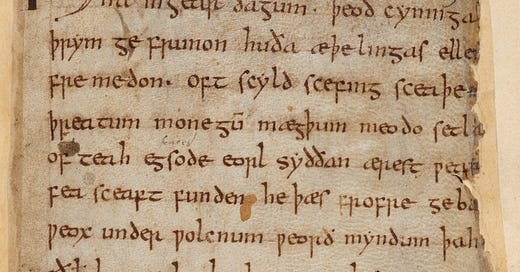 in gear dagum. þeod cyninga
þrym ge frunon huða æþelingas elle
fre medon. oft scyld scefing sceaþe
þreatum monegū mægþum meodo setla
of teah egsode eorl syððan ærest ƿear
fea sceaft funden he þæs frofre geba
ƿeox under ƿolcnum ƿeorð myndum þah